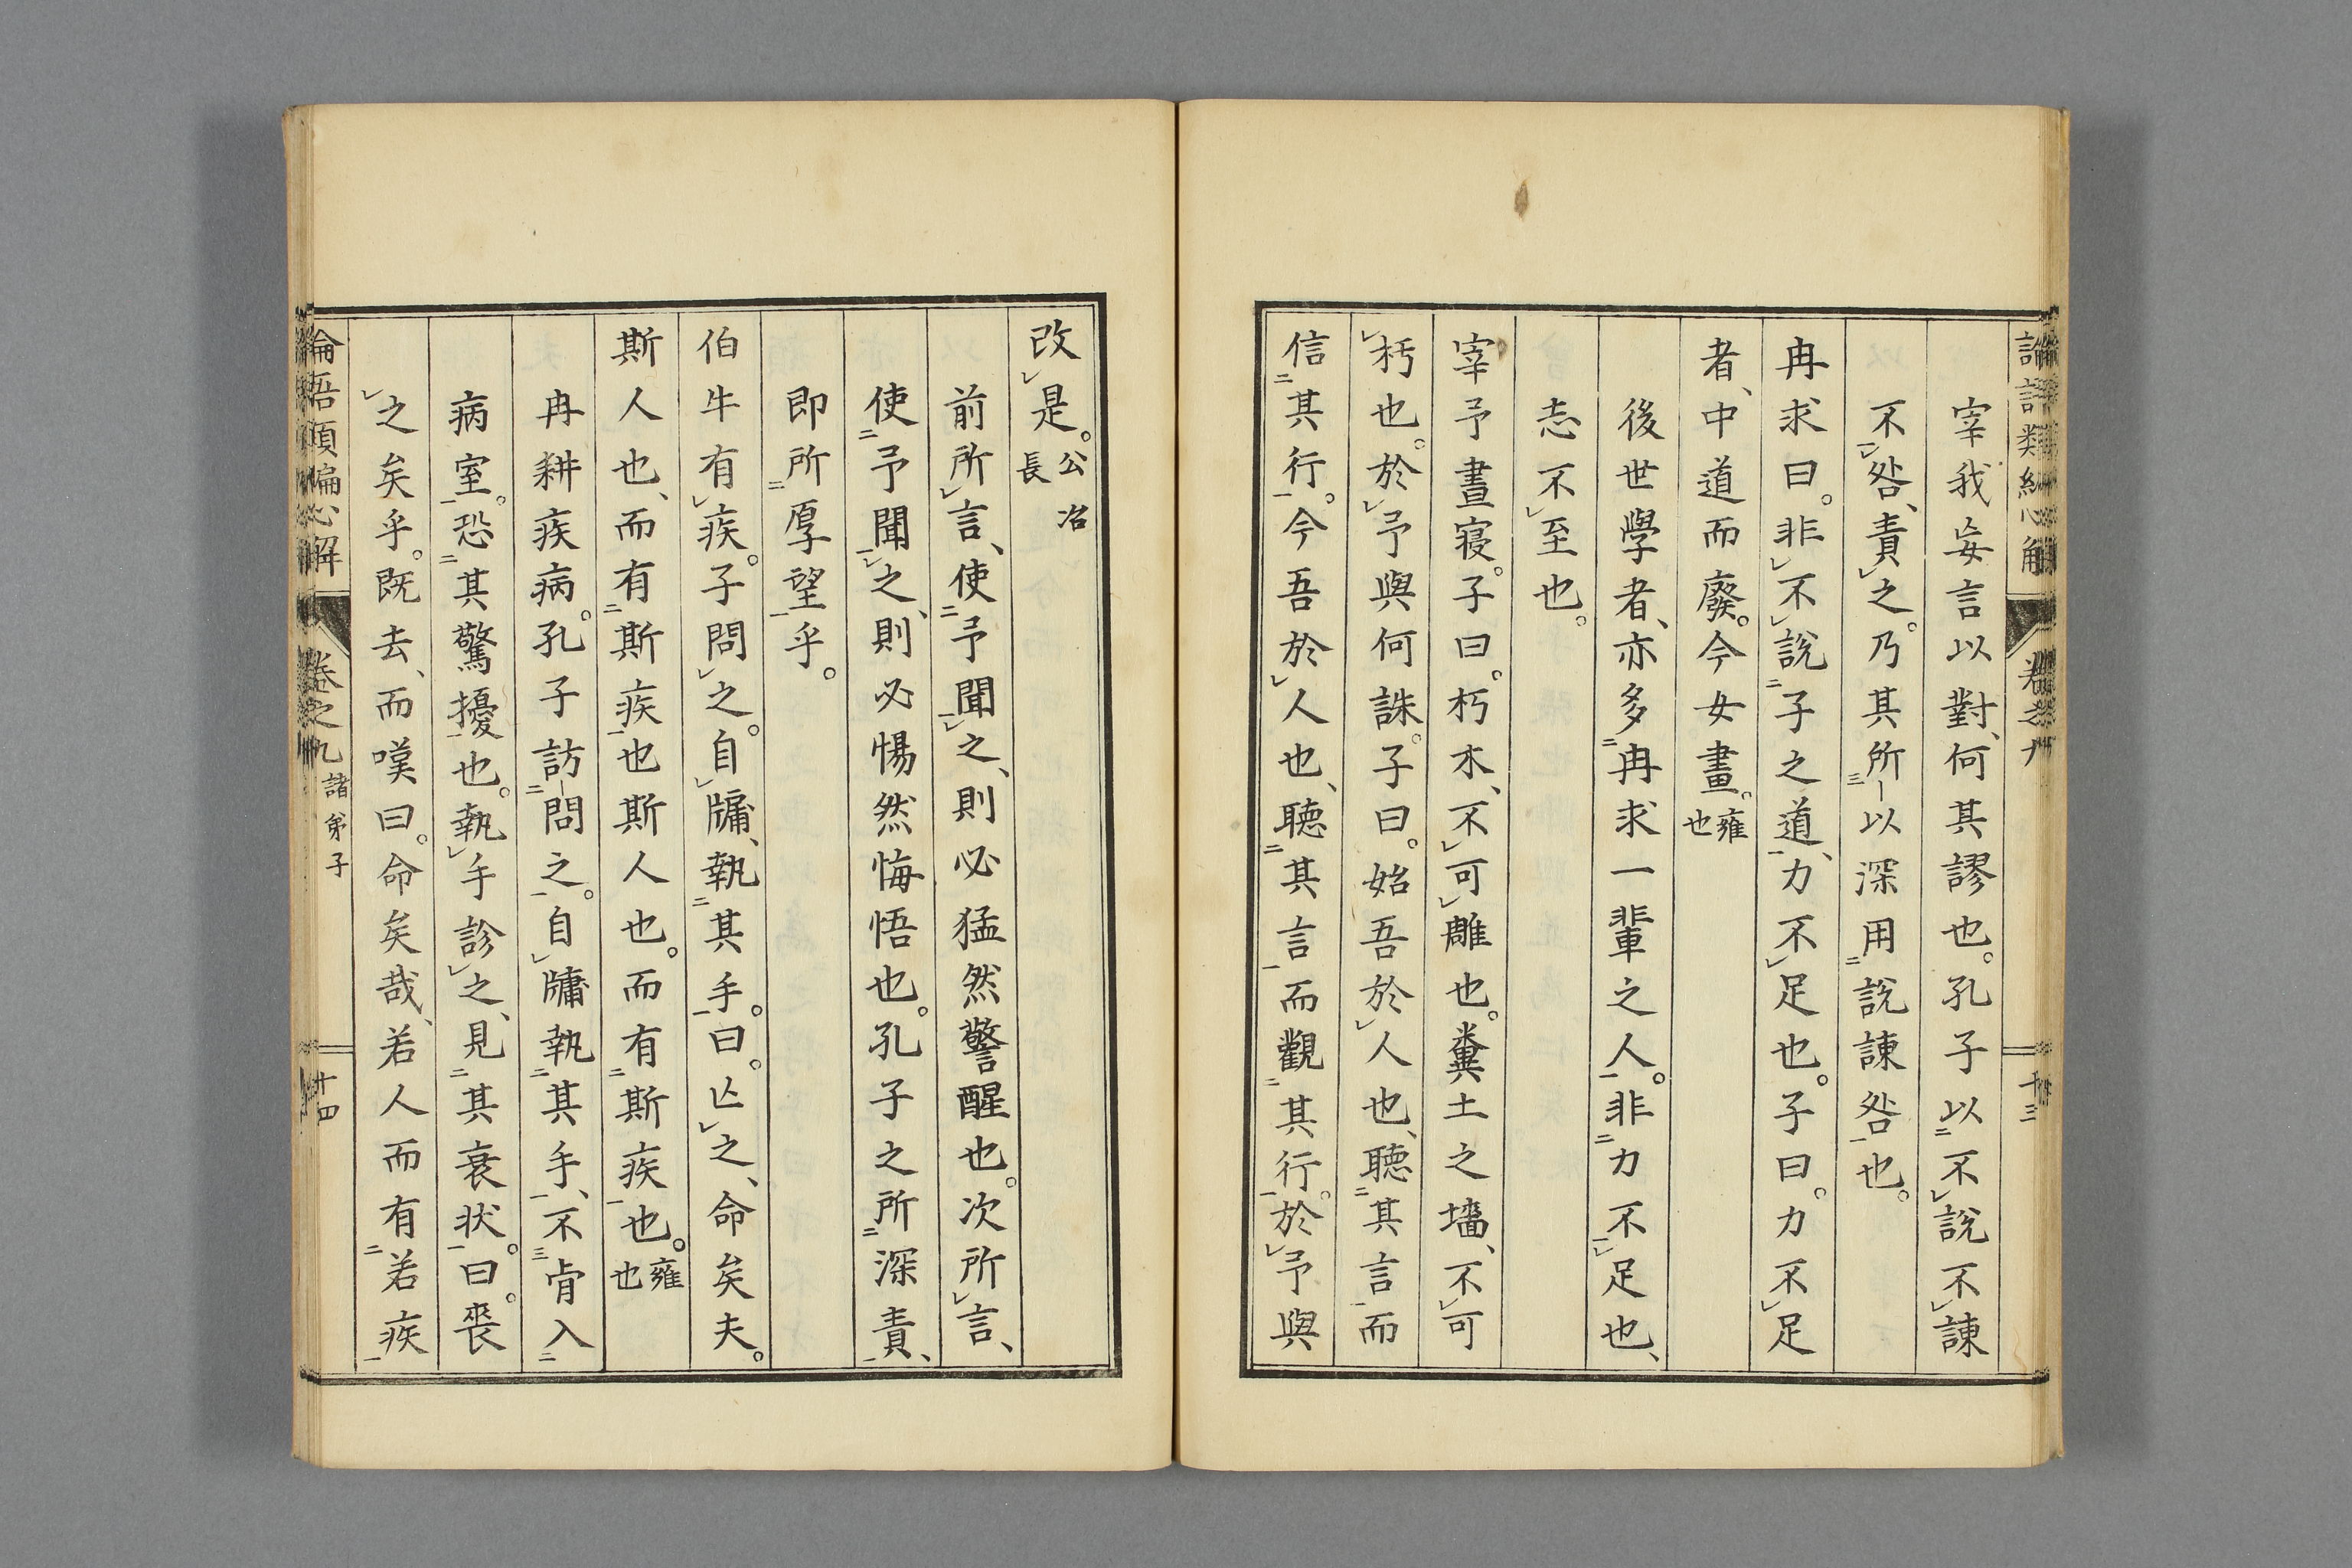 宰我妄言以對、何其謬也。孔子以不說不諫
不咎、責之。乃其所以深用說諫咎也。
冉求曰。非不說子之道、力不足也。子曰。力不足
者、中道而廢。今女畫。雍也
後世學者、亦多冉求一輩之人。非力不足也、
志不至也。
宰予晝寢。子曰。朽木、不可雕也。糞土之墻、不可
杇也。於予與何誅。子曰。始吾於人也、聽其言而
信其行。今吾於人也、聽其言而觀其行。於予與
改是。公冶長
前所言、使予聞之、則必猛然警醒也。次所言、
使予聞之、則必惕然悔悟也。孔子之所深責、
即所厚望乎。
伯牛有疾。子問之。自牖、執其手。曰。亾之、命矣夫。
斯人也、而有斯疾也斯人也。而有斯疾也。雍也
冉耕疾病。孔子訪問之。自牖執其手、不肯入
病室。恐其驚擾也。執手診之、見其衰状。曰。喪
之矣乎。既去、而嘆曰。命矣哉、若人而有若疾
卷之九 諸弟子
十四